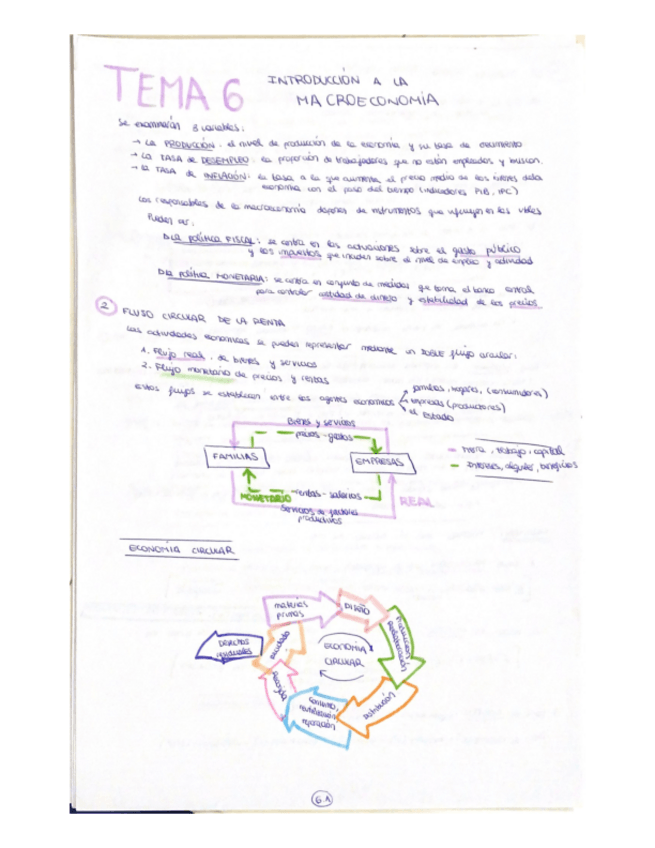 TEMA 6
INTRODUCCIÓN A LA
MACROECONOMÍA
Se examinarán 3 variables:
→ La PRODUCCIÓN: el nivel de producción de la economía y su tasa de crecimiento
→ La TASA de DESEMPLEO: la proporción de trabajadores que no están empleados y buscan.
→ la TASA de INFLACIÓN: la tasa a la que aumenta el precio medio de los bienes de la
economía con el paso del tiempo (indicadores PIB, IPC)
Los responsables de la macroeconomía disponen de instrumentos que influyen en las vbles
Pueden ser:
La política FISCAL: se centra en las actuaciones sobre el gasto público
y los impuestos que inciden sobre el nivel de empleo y actividad
La política MONETARIA: se centra en conjunto de medidas que toma el banco central
para controlar cantidad de dinero y estabilidad de los precios.
2 FLUJO CIRCULAR DE LA RENTA
Las actividades económicas se pueden representar mediante un doble flujo circular:
1. Flujo real, de bienes y servicios
2. Flujo monetario de precios y rentas
Estos flujos se establecen entre los agentes económicos
familias, hogares, (consumidores)
empresas (productores)
el Estado
Bienes y servicios
precios - gastos
FAMILIAS
EMPRESAS
MONETARIO
rentas - salarios
Servicios de factores
productivos
REAL
tierra, trabajo, capital
Intereses, alquiler, beneficios
ECONOMÍA CIRCULAR
materias
primas
DISEÑO
Producción
reelaboración
distribución
consumo,
reutilización
reparación
Recogida
Reciclado
Desechos
residuales
ECONOMÍA
CIRCULAR
6.1